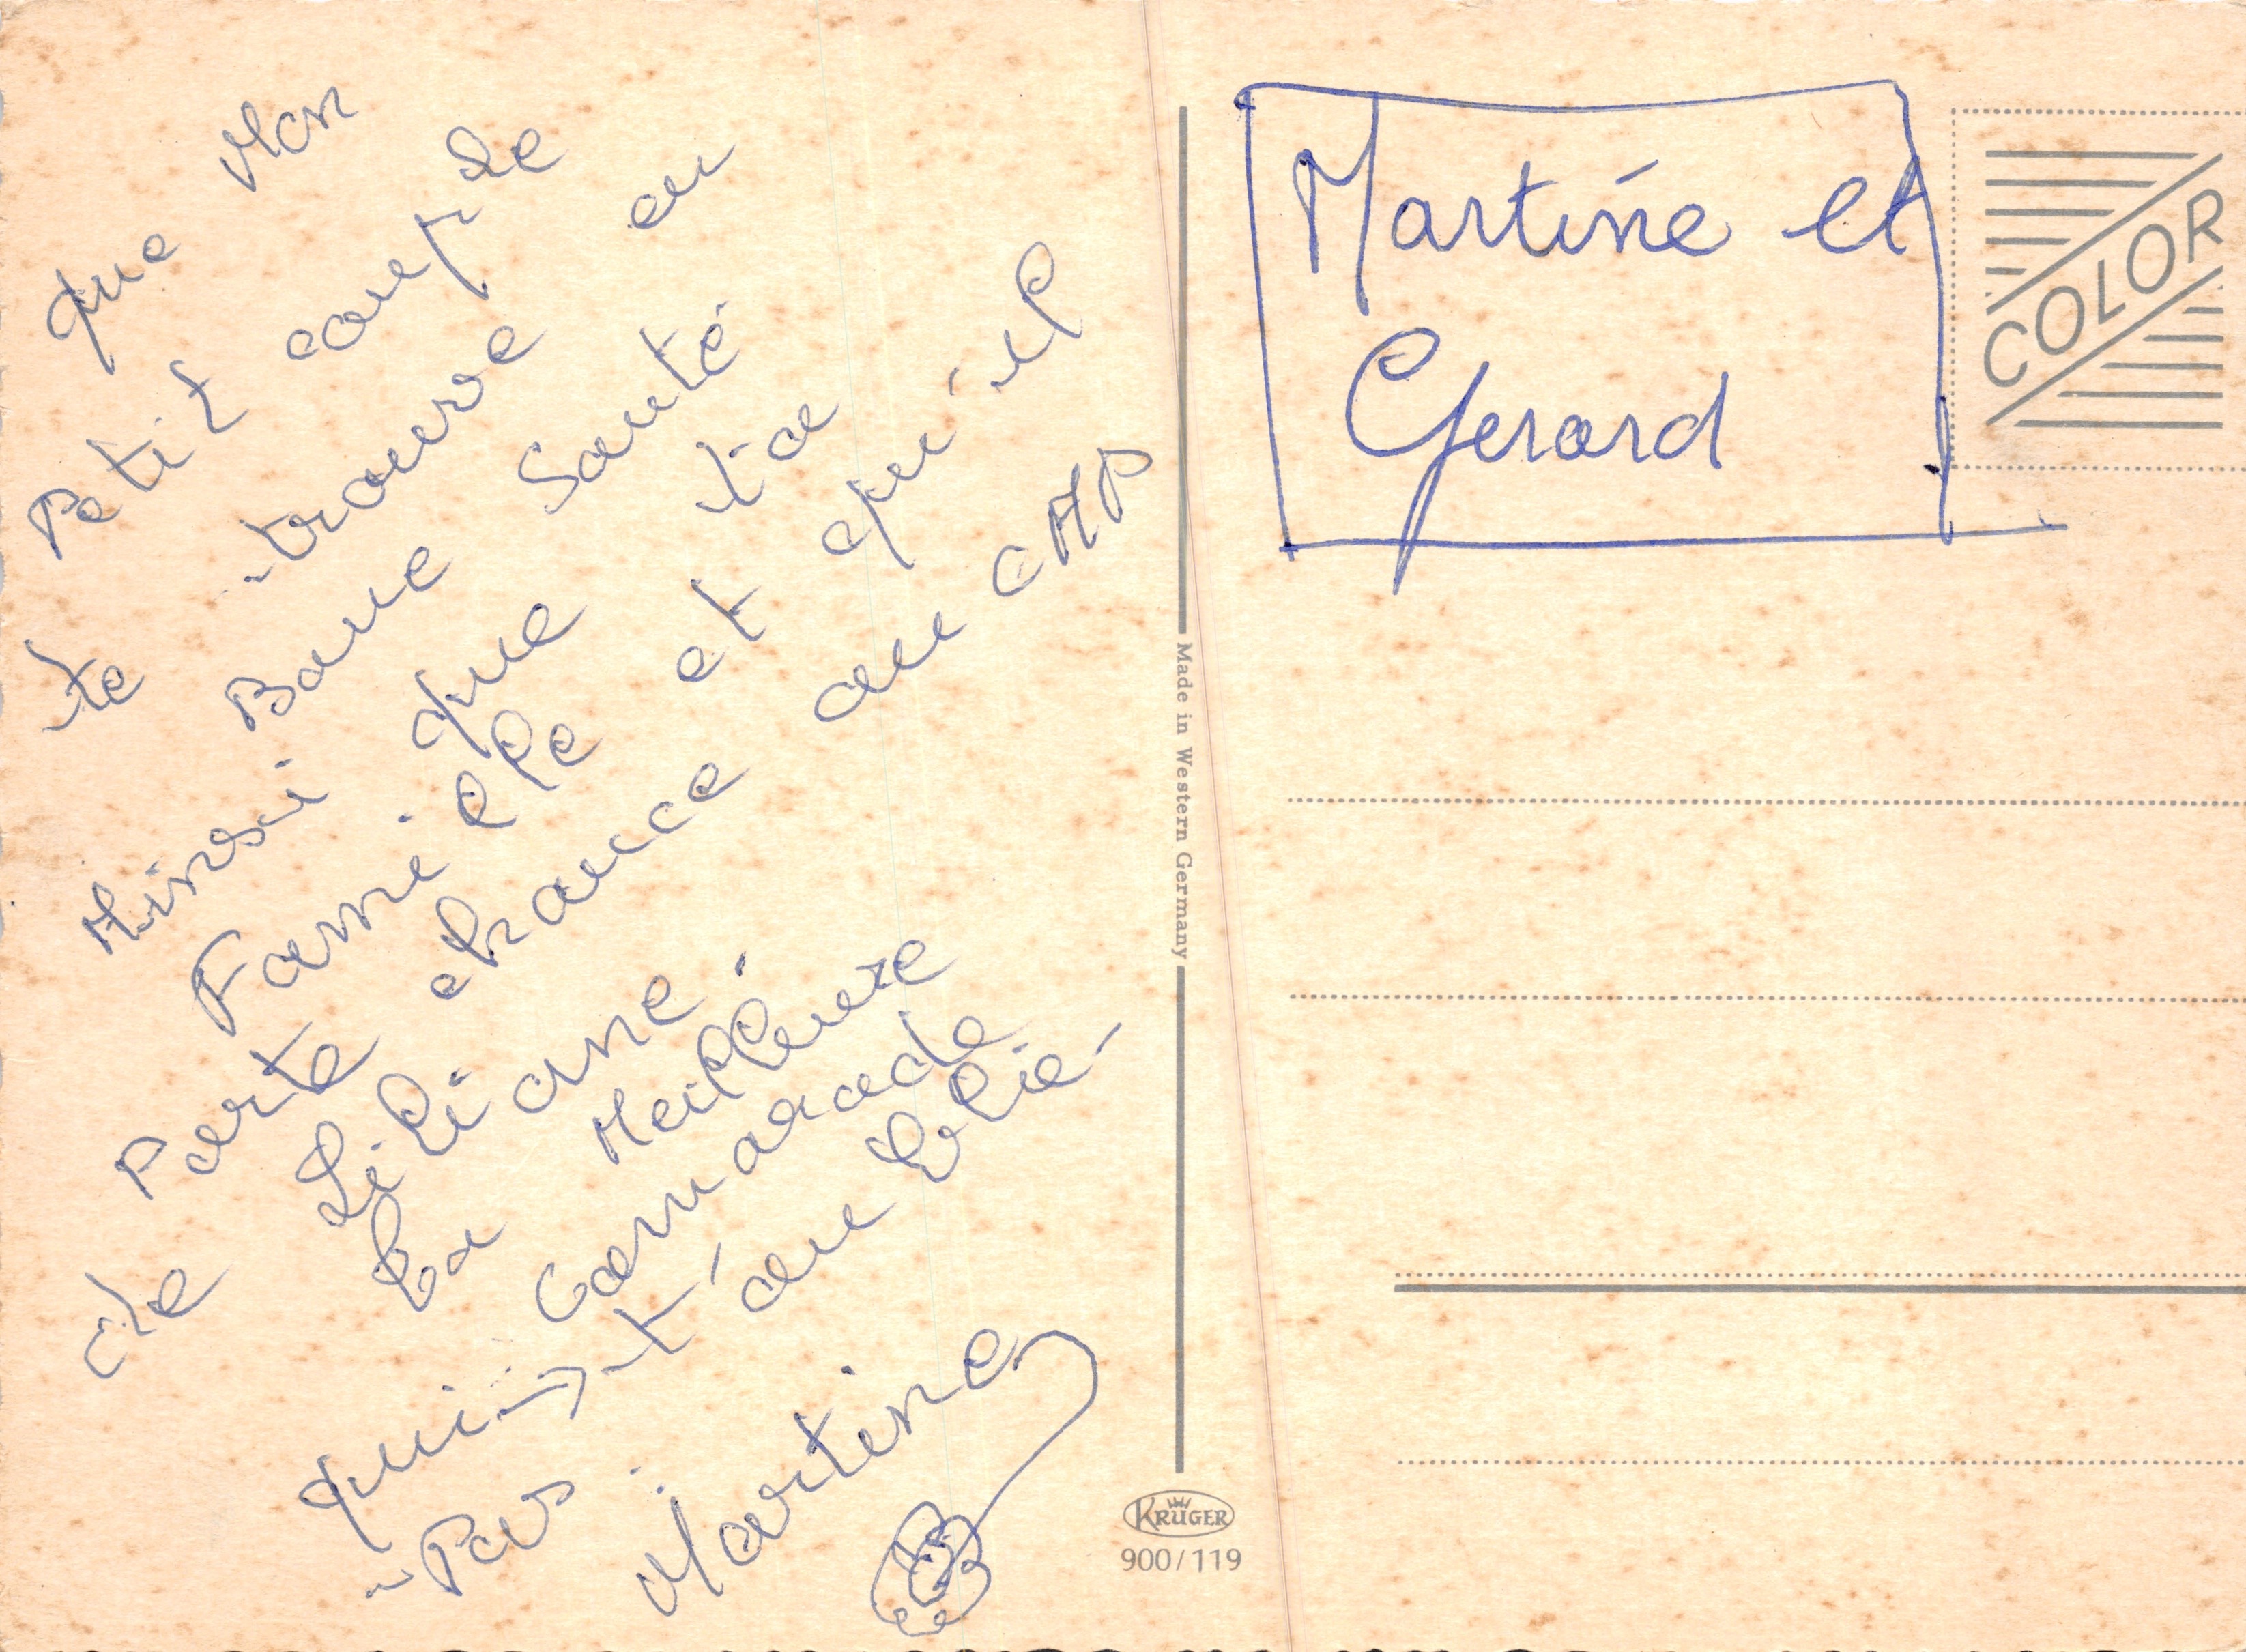 que Mon
Petit coup de
te trouve en
Bonne Santé
Ainsi que ta
Famille et qu'il
te Porte chance au CAP
Liliane
La Meilleure
Camarade
qui t'oublié
Pas.
Martine
Martine et
Gerard
COLOR
Made in Western Germany
KRÜGER
900/119